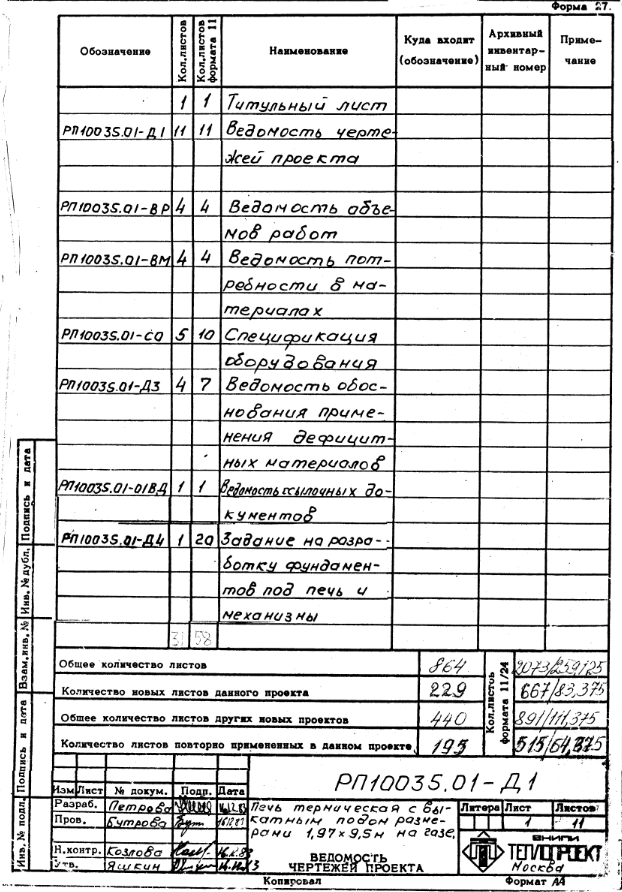 Форма 27.
Обозначение Кол.листов Кол.листов формата 11 Наименование Куда входит (обозначение) Архивный инвентарный номер Примечание
1 1 Титульный лист
РП10035.01-Д1 11 11 Ведомость черте-
жей проекта
РП10035.01-ВР 4 4 Ведомость объе-
мов работ
РП10035.01-ВМ 4 4 Ведомость пот-
ребности в ма-
териалах
РП10035.01-СО 5 10 Спецификация
оборудования
РП10035.01-Д3 4 7 Ведомость обос-
нования приме-
нения дефицит-
ных материалов
РП10035.01-01ВД 1 1 Ведомость ссылочных до-
кументов
РП10035.01-Д4 1 20 Задание на разра-
ботку фундамен-
тов под печь и
механизмы
31 58
Общее количество листов 864 2073/259,125
Количество новых листов данного проекта 229 667/83,375
Общее количество листов других новых проектов 440 891/111,375
Количество листов повторно примененных в данном проекте 195 515/64,375
Кол.листов формата 11/24
РП10035.01-Д1
Изм Лист № докум. Подп. Дата
Разраб. Петрова
Пров. Бутрова
Н.контр. Козлова
Утв. Яшкин
Печь термическая с вы-
катным подом разме-
рами 1,97×9,5м на газе,
ВЕДОМОСТЬ
ЧЕРТЕЖЕЙ ПРОЕКТА
Литера Лист Листов
1 11
ВНИПИ
ТЕПЛОПРОЕКТ
Москва
Копировал Формат А4
Подпись и дата
Инв. № дубл.
Взам.инв. №
Подпись и дата
Инв. № подл.